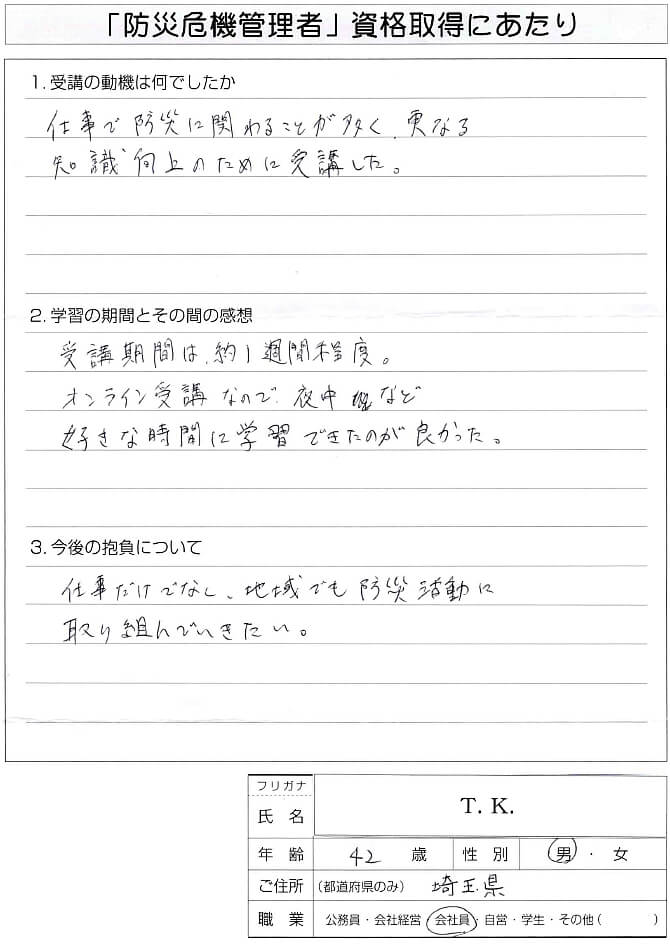 「防災危機管理者」資格取得にあたり
1. 受講の動機は何でしたか
仕事で防災に関わることが多く、更なる
知識向上のために受講した。
2. 学習の期間とその間の感想
受講期間は、約1週間程度。
オンライン受講なので、夜中など
好きな時間に学習できたのが良かった。
3. 今後の抱負について
仕事だけでなし、地域でも防災活動に
取り組んでいきたい。
フリガナ
氏 名 T. K.
年 齢 42 歳 性 別 男 ・ 女
ご住所 (都道府県のみ) 埼玉県
職 業 公務員・会社経営・会社員・自営・学生・その他( )